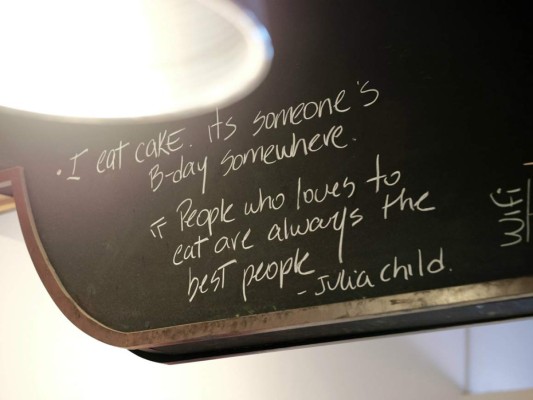 • I eat cake. its someone's
B-day somewhere.
" People who loves to
eat are always the
best people
- Julia child.
Wifi